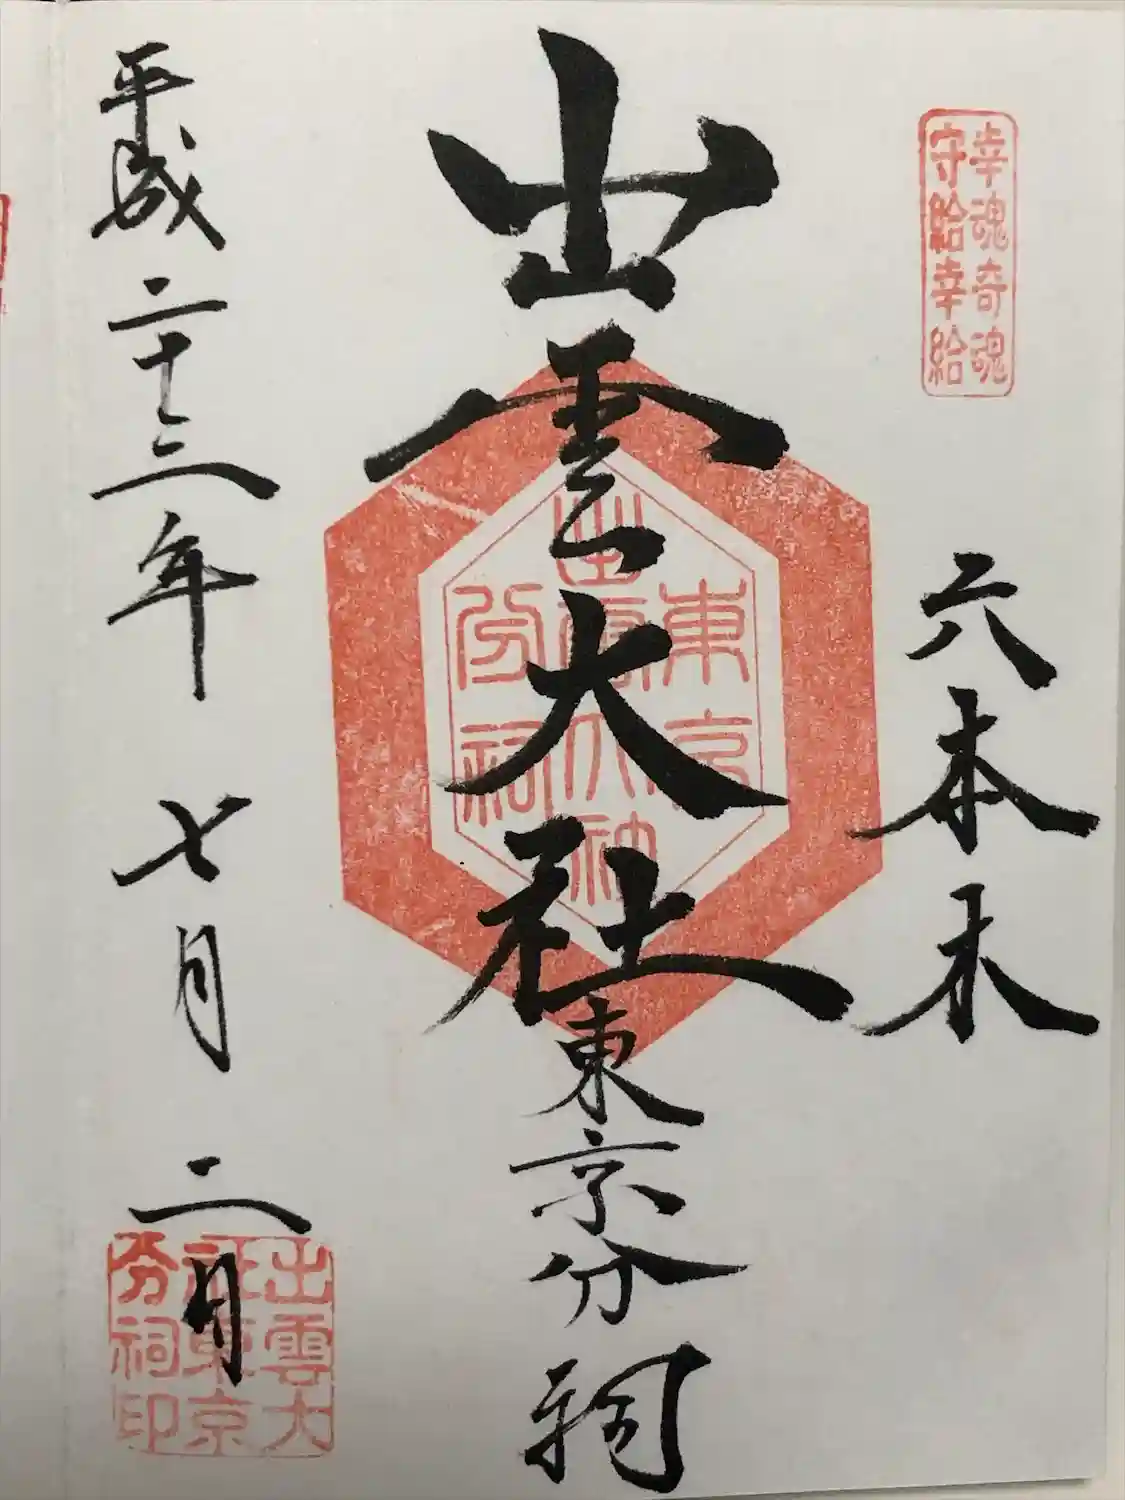 幸魂奇魂
守給幸給
六本木
出雲大社東京分祠
東京
出雲大社
分祠
平成二十三年 七月 二日
出雲大
社東京
分祠印